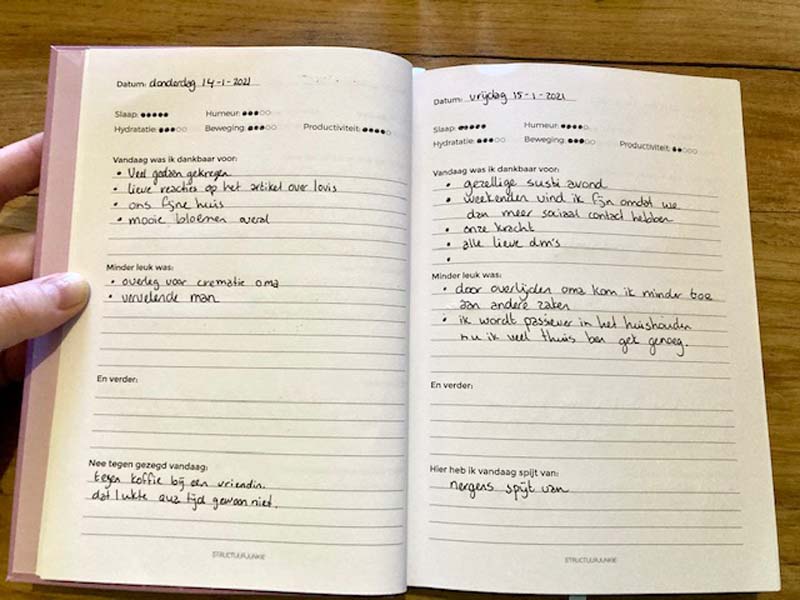 Datum: donderdag 14-1-2021
Slaap: ●●●●● Humeur: ●●●○○
Hydratatie: ●●●○○ Beweging: ●●●○○ Productiviteit: ●●●●○
Vandaag was ik dankbaar voor:
• Veel gedaan gekregen
• lieve reacties op het artikel over lovis
• ons fijne huis
• mooie bloemen overal
Minder leuk was:
• overleg voor crematie oma
• vervelende man
En verder:
Nee tegen gezegd vandaag:
tegen koffie bij een vriendin.
dat lukte qua tijd gewoon niet.
STRUCTUURJUNKIE
Datum: vrijdag 15-1-2021
Slaap: ●●●●● Humeur: ●●●●○
Hydratatie: ●●●○○ Beweging: ●●●○○ Productiviteit: ●●○○○
Vandaag was ik dankbaar voor:
• gezellige sushi avond
• weekenden vind ik fijn omdat we
dan meer sociaal contact hebben
• onze kracht
• alle lieve dm's
•
Minder leuk was:
• door overlijden oma kom ik minder toe
aan andere zaken
• ik wordt passiever in het huishouden
nu ik veel thuis ben gek genoeg.
En verder:
Hier heb ik vandaag spijt van:
nergens spijt van
STRUCTUURJUNKIE